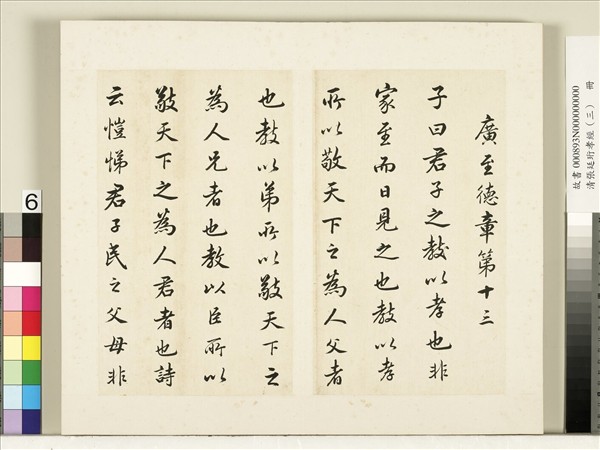 廣至德章第十三
子曰君子之教以孝也非
家至而日見之也教以孝
所以敬天下之為人父者
也教以弟所以敬天下之
為人兄者也教以臣所以
敬天下之為人君者也詩
云愷悌君子民之父母非
故書
清張廷珩孝經（三） 冊
6